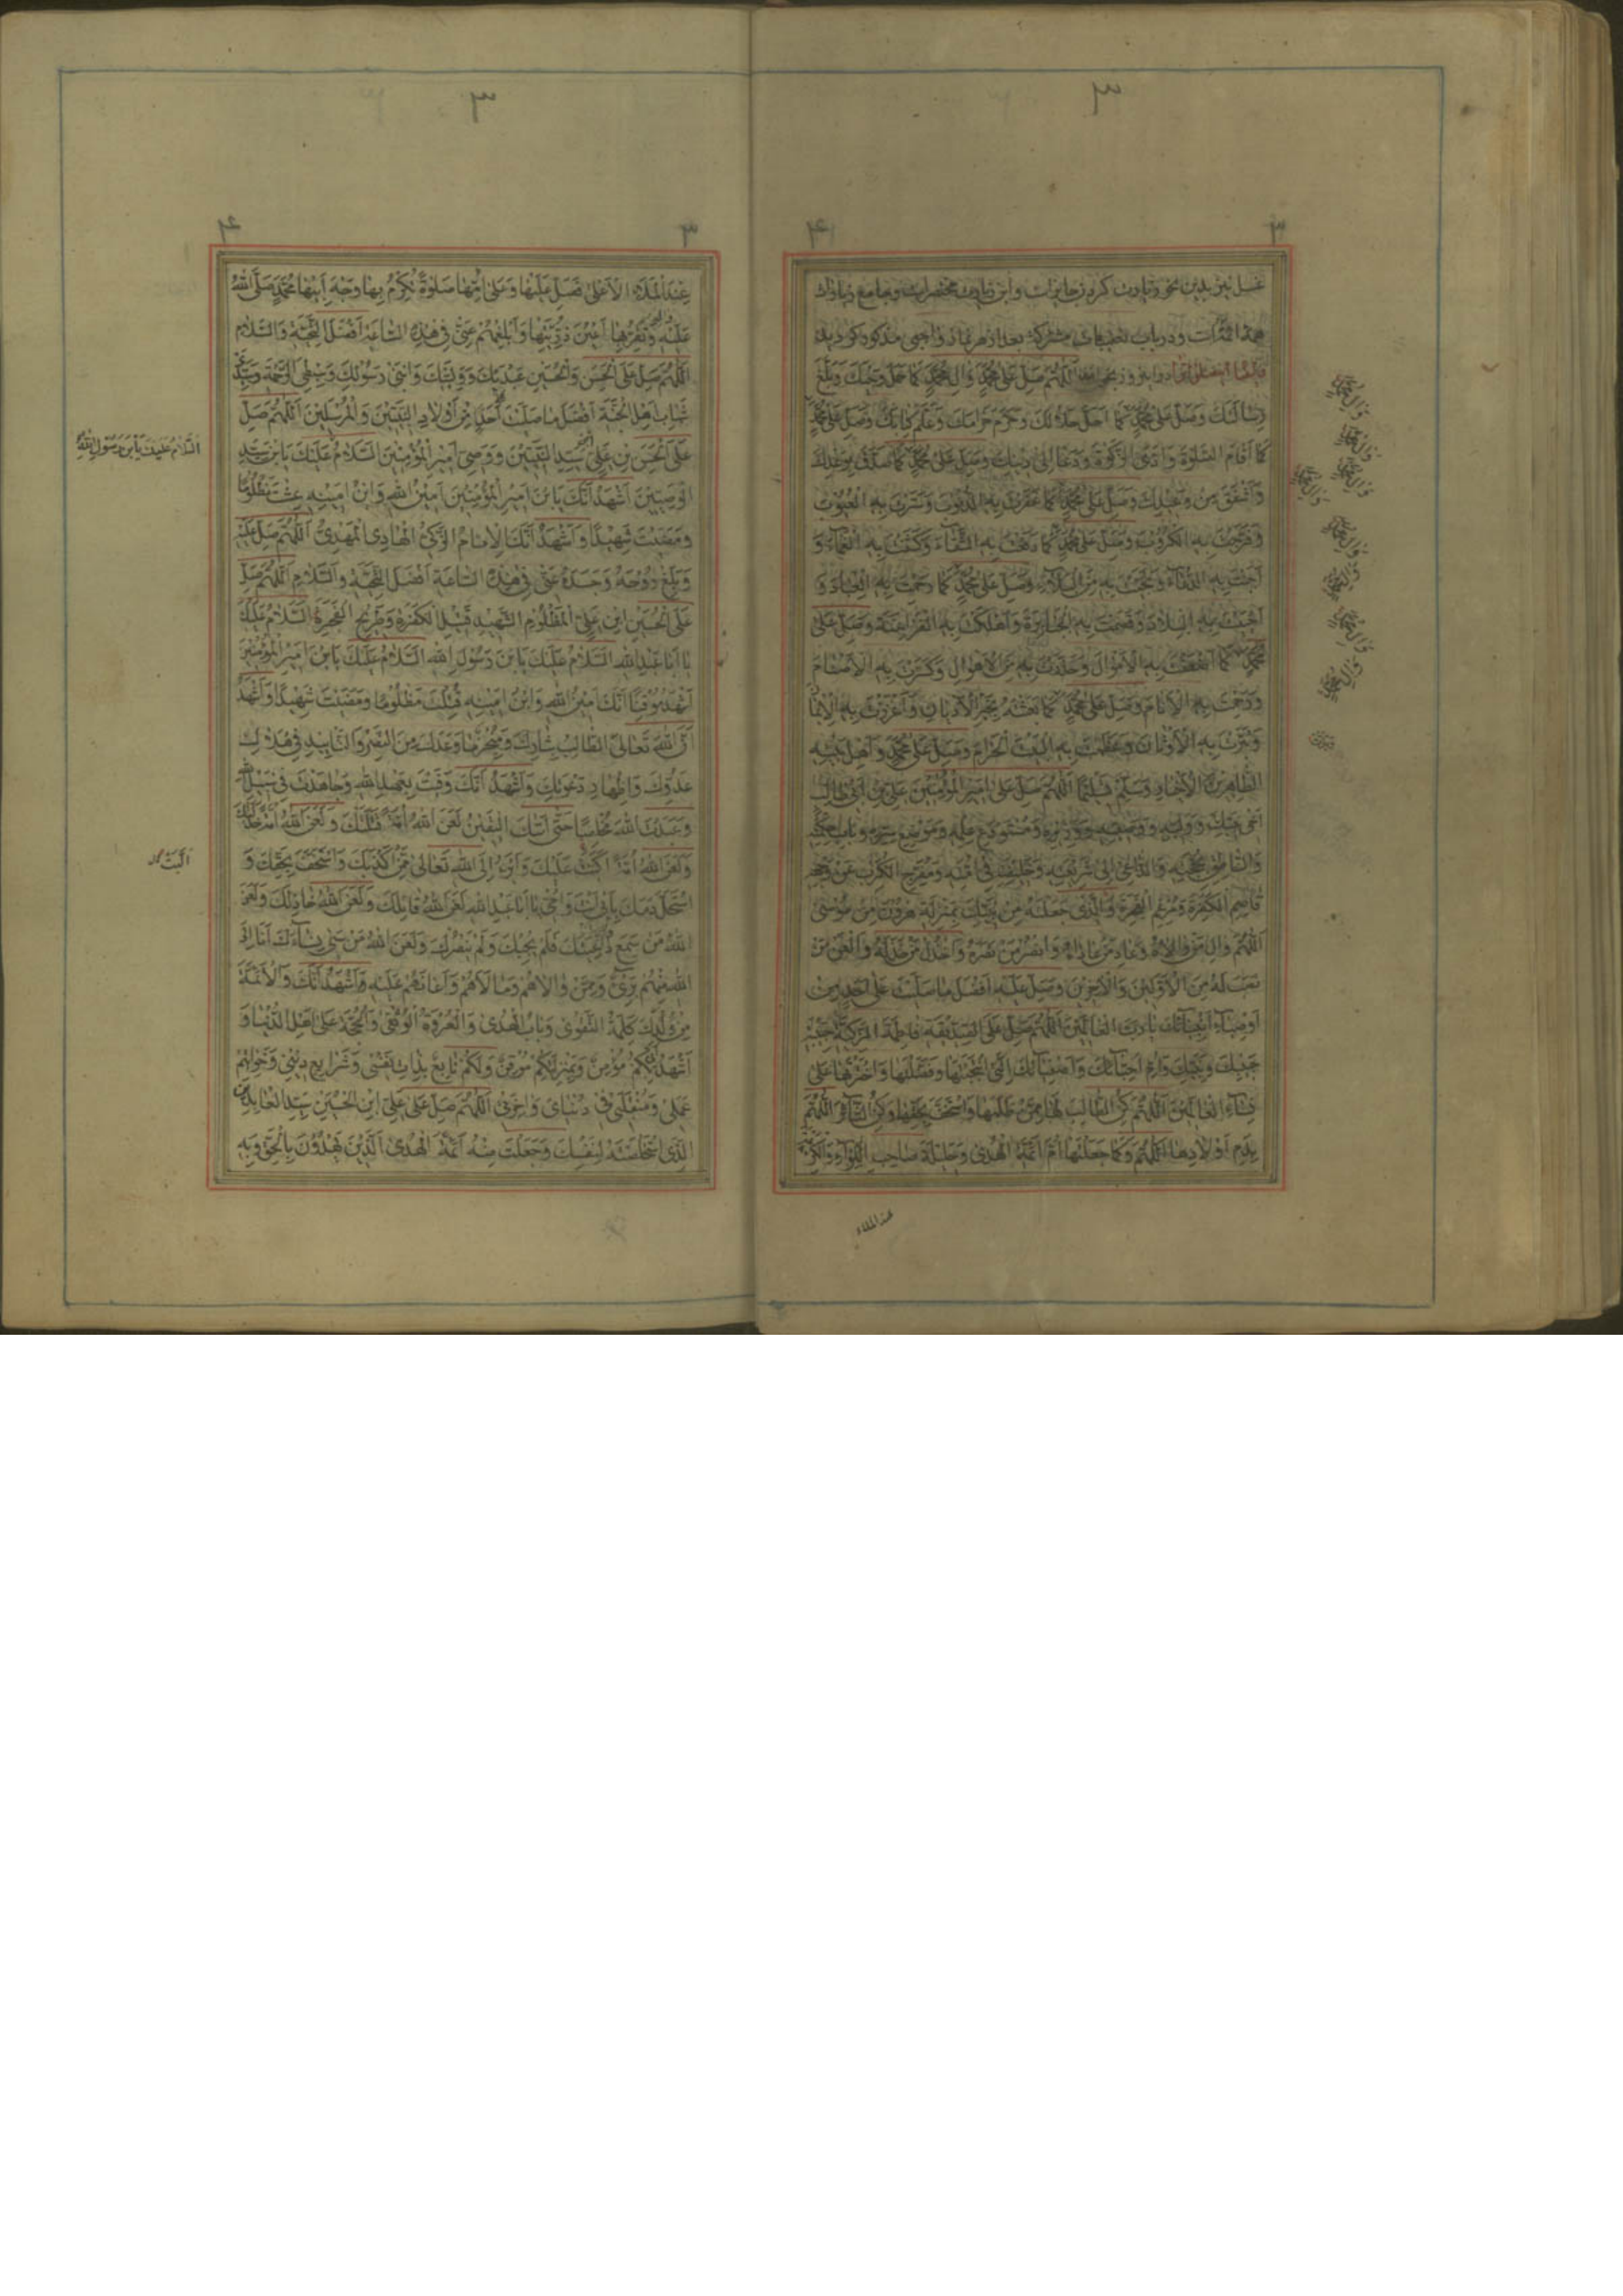 غسل نیز بدین نحو و زیارت کرده زجا برات و این زیارت مختصرات و جامع زیارات
همه ائمه است و در باب تعقیبات مشترکه بعد از هر نماز واجبی مذکور گردید
اللهم صل على محمد وال محمد كما حمل وحيك وبلغ
رسالاتك وصل على محمد كما احل حلالك وحرم حرامك وعلم كتابك وصل على محمد
كما اقام الصلوة واتى الزكوة ودعا الى دينك وصل على محمد كما صدق بوعدك
واشفق من وعيدك وصل على محمد كما غفرت به الذنوب وسترت به العيوب
وفرجت به الكروب وصل على محمد كما دفعت به الشقاء وكشفت به الغماء و
اجبت به الدعاء ونجيت به من البلاء وصل على محمد كما رحمت به العباد و
احييت به البلاد وقصمت به الجبابرة واهلكت به الفراعنة وصل على
محمد كما اضعفت به الاموال وحذرت به من الاهوال وكسرت به الاصنام
ورحمت به الانام وصل على محمد كما بعثته بخير الاديان واعززت به الايمان
وتبرت به الاوثان وعظمت به البيت الحرام وصل على محمد واهل بيته
الطاهرين الاخيار وسلم تسليما اللهم صل على امير المؤمنين على بن ابى طالب
اخى نبيك ووليه ووصيه ووزيره ومستودع علمه وموضع سره وباب حكمته
والناطق بحجته والداعى الى شريعته وخليفته فى امته ومفرج الكرب عن وجهه
قاصم الكفرة ومرغم الفجرة الذى جعلته من نبيك بمنزلة هرون من موسى
اللهم وال من والاه وعاد من عاداه وانصر من نصره واخذل من خذله والعن من
نصب له من الاولين والاخرين وصل عليه افضل ما صليت على احد من
اوصياء انبيائك يا رب العالمين اللهم صل على الصديقة فاطمة الزكية حبيبة
حبيبك ونبيك وام احبائك واصفيائك التى انتجبتها وفضلتها واخترتها على
نساء العالمين اللهم كن الطالب لها ممن ظلمها واستخف بحقها وكن الثائر اللهم
بدم اولادها اللهم وكما جعلتها ام ائمة الهدى وحليلة صاحب اللواء والكريمة
عند الملاء
عند الملاء الاعلى فصل عليها وعلى امها صلوة تكرم بها وجه ابيها محمد صلى الله
عليه واله وتقر بها اعين ذريتها وابلغهم عنى فى هذه الساعة افضل التحية والسلام
اللهم صل على الحسن والحسين عبديك ووليك وابنى رسولك وسبطى الرحمة وسيدى
شباب اهل الجنة افضل ما صليت على احد من اولاد النبيين والمرسلين اللهم صل
على الحسن بن على سيد النبيين ووصى امير المؤمنين السلام عليك يا بن سيد
السلام عليك يا بن رسول الله
الوصيين اشهد انك يا بن امير المؤمنين امين الله وابن امينه عشت مظلوما
ومضيت شهيدا واشهد انك الامام الزكى الهادى المهدى اللهم صل عليه
وبلغ روحه وجسده عنى فى هذه الساعة افضل التحية والسلام اللهم صل
على الحسين ابن على المظلوم الشهيد قتيل الكفرة وطريح الفجرة السلام عليك
يا ابا عبد الله السلام عليك يا بن رسول الله السلام عليك يا بن امير المؤمنين
اشهد موقنا انك امين الله وابن امينه قتلت مظلوما ومضيت شهيدا واشهد
ان الله تعالى الطالب بثارك ومنجز ما وعدك من النصر والتاييد فى هلاك
عدوك واظهار دعوتك واشهد انك وفيت بعهد الله وجاهدت فى سبيل الله
وعبدت الله مخلصا حتى اتاك اليقين لعن الله امة قتلتك ولعن الله امة خذلتك
ولعن الله امة البت عليك وابرء الى الله تعالى ممن اكذبك واستخف بحقك و
استحل دمك بابى انت وامى يا ابا عبد الله لعن الله قاتلك ولعن الله خاذلك ولعن
الله من سمع داعيتك فلم يجبك ولم ينصرك ولعن الله من سبى نساءك انا الى
الله منهم برىء وممن والاهم ومالاهم واعانهم عليه واشهد انك والائمة
من ولدك كلمة التقوى وباب الهدى والعروة الوثقى والحجة على اهل الدنيا و
اشهد انى بكم مؤمن وبمنزلتكم موقن ولكم تابع بذات نفسى وشرايع دينى وخواتيم
عملى ومنقلبى فى دنياى واخرتى اللهم صل على على ابن الحسين سيد العابدين
الذى استخلصته لنفسك وجعلت منه ائمة الهدى الذين يهدون بالحق وبه